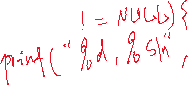 ! = NULL) {
printf( " %d, %s\n",